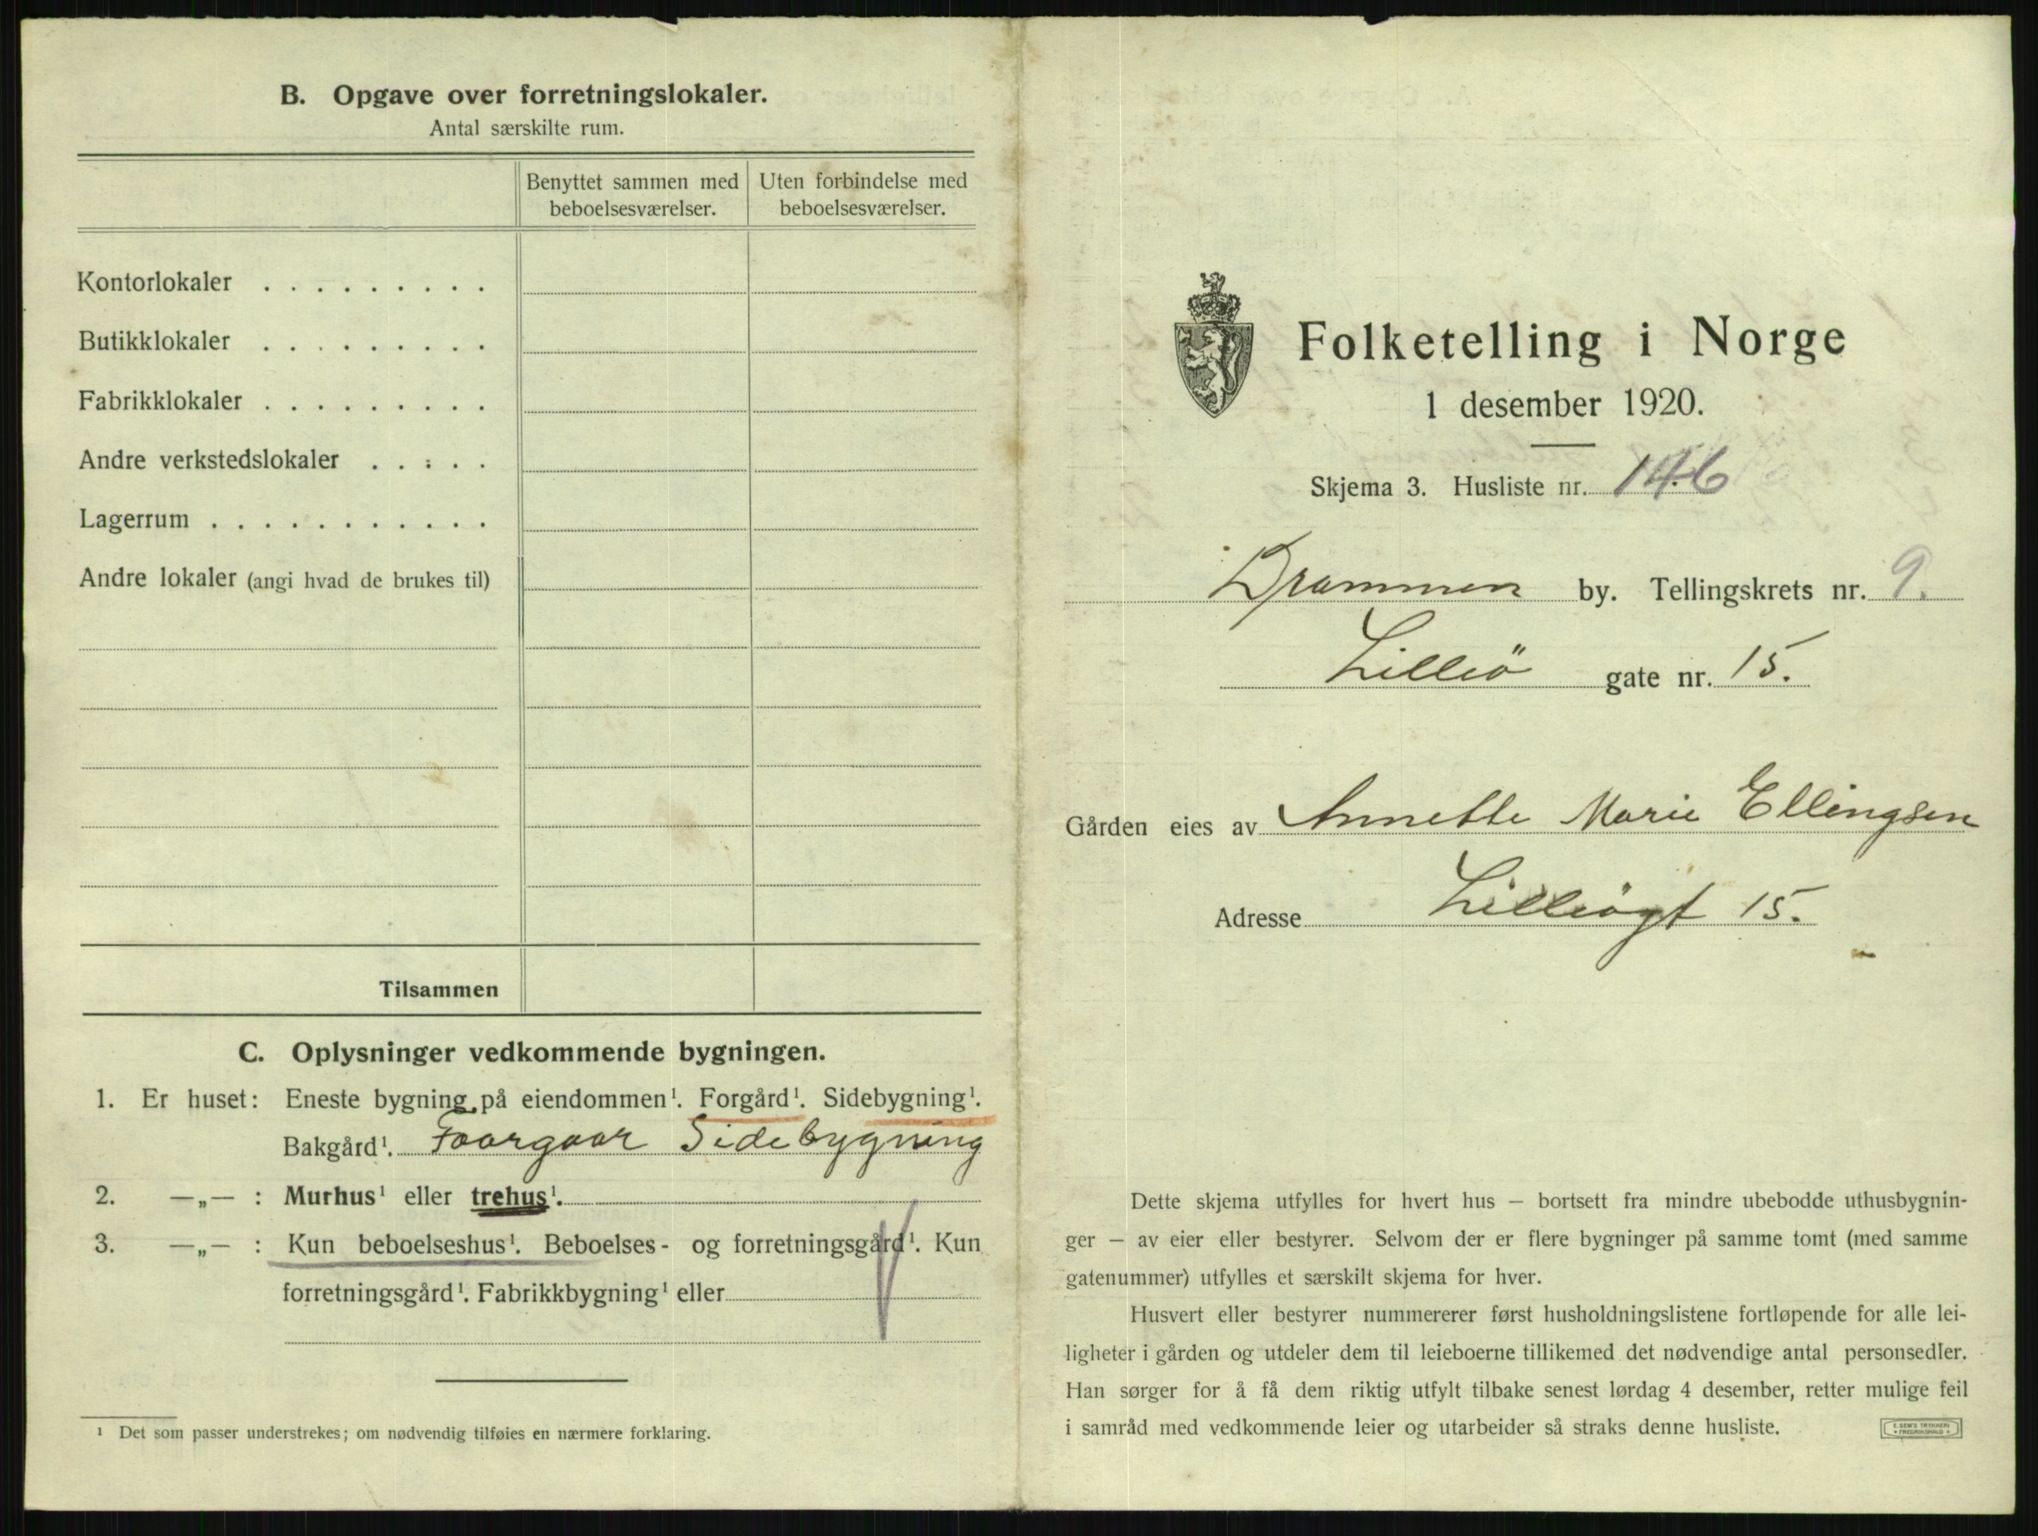 B. Opgave over forretningslokaler.
Antal særskilte rum.
Benyttet sammen med beboelsesværelser.
Uten forbindelse med beboelsesværelser.
Kontorlokaler . . . . . . . . .
Butikklokaler . . . . . . . . .
Fabrikklokaler . . . . . . . . .
Andre verkstedslokaler . . . . .
Lagerrum . . . . . . . . . . .
Andre lokaler (angi hvad de brukes til)
Tilsammen
C. Oplysninger vedkommende bygningen.
1. Er huset: Eneste bygning på eiendommen¹. Forgård¹. Sidebygning¹.
Bakgård¹. Foorgaar Sidebygning
2. —„— : Murhus¹ eller trehus¹.
3. —„— : Kun beboelseshus¹. Beboelses- og forretningsgård¹. Kun
forretningsgård¹. Fabrikkbygning¹ eller
¹ Det som passer understrekes; om nødvendig tilføies en nærmere forklaring.
Folketelling i Norge
1 desember 1920.
Skjema 3. Husliste nr. 146
Drammen by. Tellingskrets nr. 9.
Lilleö gate nr. 15.
Gården eies av Annette Marie Ellingsen
Adresse Lilleögt 15.
Dette skjema utfylles for hvert hus – bortsett fra mindre ubebodde uthusbygnin-
ger – av eier eller bestyrer. Selvom der er flere bygninger på samme tomt (med samme
gatenummer) utfylles et særskilt skjema for hver.
Husvert eller bestyrer nummererer først husholdningslistene fortløpende for alle lei-
ligheter i gården og utdeler dem til leieboerne tillikemed det nødvendige antal personsedler.
Han sørger for å få dem riktig utfylt tilbake senest lørdag 4 desember, retter mulige feil
i samråd med vedkommende leier og utarbeider så straks denne husliste.
E. SEM'S TRYKKERI
FREDRIKSHALD